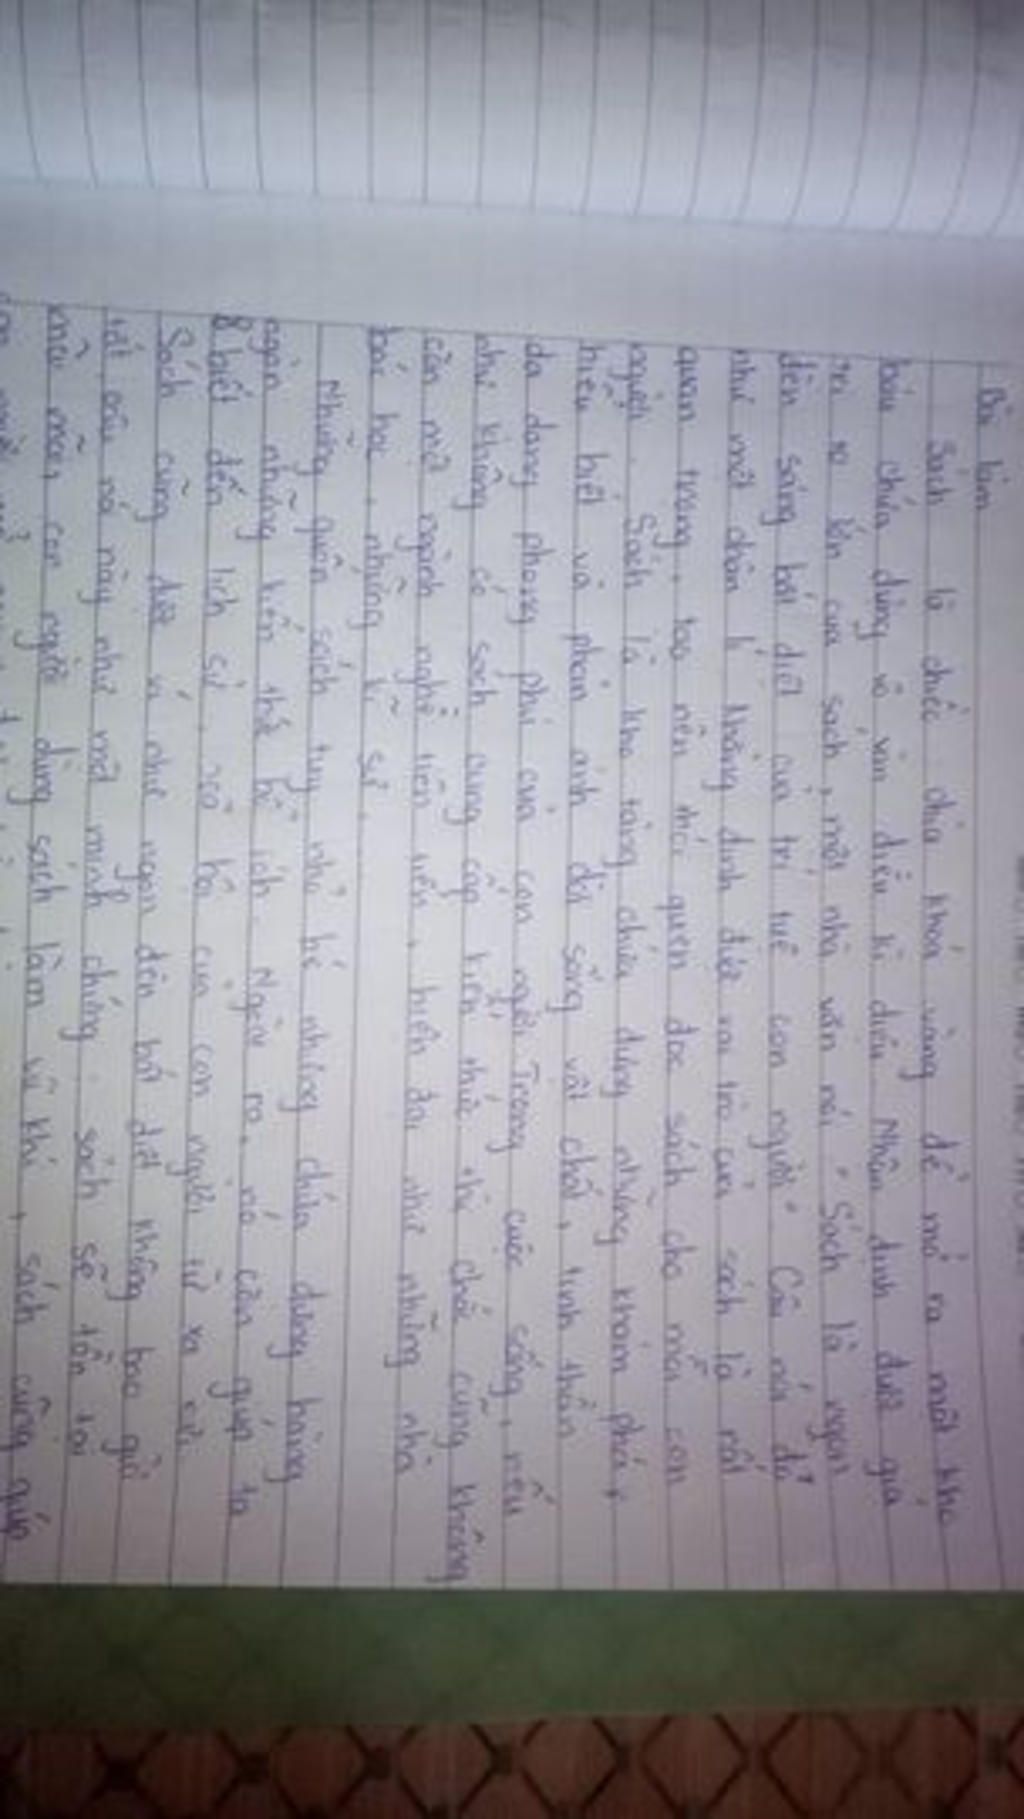 Bài làm
Sách là chiếc chìa khoá vàng để mở ra một kho
báu chứa đựng vô vàn điều kì diệu. Nhận định được giá
trị to lớn của sách, một nhà văn nói "Sách là ngọn
đèn sáng bất diệt của trí tuệ con người". Câu nói đó
như một chân lí khẳng định được vai trò của sách là rất
quan trọng, tạo nên thói quen đọc sách cho mỗi con
người. Sách là kho tàng chứa đựng những khám phá,
hiểu biết và phản ánh đời sống vật chất, tinh thần
đa dạng phong phú của con người. Trong cuộc sống, nếu
như không có sách cung cấp kiến thức thì chắc cũng không
còn mở ngành nghề tiên tiến, hiện đại như những nhà
bác học, những kĩ sư.
Những quyển sách tuy nhỏ bé nhưng chứa đựng hàng
ngàn những kiến thức bổ ích. Ngoài ra, nó còn giúp ta
biết đến lịch sử, xã hội của con người từ xa xưa.
Sách cũng được ví như ngọn đèn bất diệt không bao giờ
tắt câu nói này như một minh chứng sách sẽ tồn tại
mãi mãi con người dùng sách làm vũ khí, sách cũng giúp